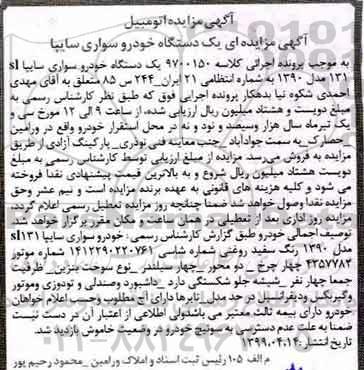 آگهی مزایده اتومبیل
آگهی مزایده ای یک دستگاه خودرو سواری سایپا
به موجب پرونده اجرائی کلاسه ۹۷۰۰۱۵۰ یک دستگاه خودرو سواری سایپا sl
۱۳۱ مدل ۱۳۹۰ به شماره انتظامی ۲۱ ایران_۲۴۴ س ۸۵ متعلق به آقای مهدی
احمدی شکوه نیا بدهکار پرونده اجرایی فوق که طبق نظر کارشناس رسمی به
مبلغ دویست و هشتاد میلیون ریال ارزیابی شده، از ساعت ۹ الی ۱۲ مورخ سی و
یک تیرماه سال هزار وسیصد و نود و نه در محل استقرار خودرو واقع در ورامین
_حصارک_به سمت جوادآباد_جنب معاینه فنی نوذری_ پارکینگ آزادی از طریق
مزایده به فروش می‌رسد. مزایده از مبلغ ارزیابی توسط کارشناس رسمی به مبلغ
دویست هشتاد میلیون ریال شروع و به بالاترین قیمت پیشنهادی نقدا فروخته
می شود و کلیه هزینه های قانونی به عهده برنده مزایده است و نیم عشر وحق
مزایده نقدا وصول خواهد شد ضمنا چنانچه روز مزایده تعطیل رسمی اعلام گردد،
مزایده روز اداری بعد از تعطیلی در همان ساعت و مکان مقرر برگزار خواهد شد.
توصیف اجمالی خودرو طبق گزارش کارشناس رسمی : خودرو سواری سایپا sl۱۳۱
مدل ۱۳۹۰ رنگ سفید روغنی شماره شاسی ۱۴۱۲۲۹۰۲۲۰۷۶۱ شماره موتور
۴۳۵۷۷۸۳ چهار چرخ_ دو محور_چهار سیلندر _نوع سوخت بنزین_ ظرفیت
جمعا چهار نفر _شیشه جلو شکستگی دارد _داشبورد وصندلی و تودوزی وموتور
وگیربکس ودیفرانسیل در حد مدل_ تایرها دارای آج مطلوب وحسب اعلام خواهان
خودرو دارای بیمه ثالث معتبر می باشدولی اطلاعی از اعتبار آن در دست نیست
ضمنا به علت عدم دسترسی به سوئیچ خودرو در وضعیت خاموش بازدید شد.
تاریخ انتشار :۱۳۹۹،۰۴،۱۴
م الف ۱۰۵ رئیس ثبت اسناد و املاک ورامین _محمود رحیم پور